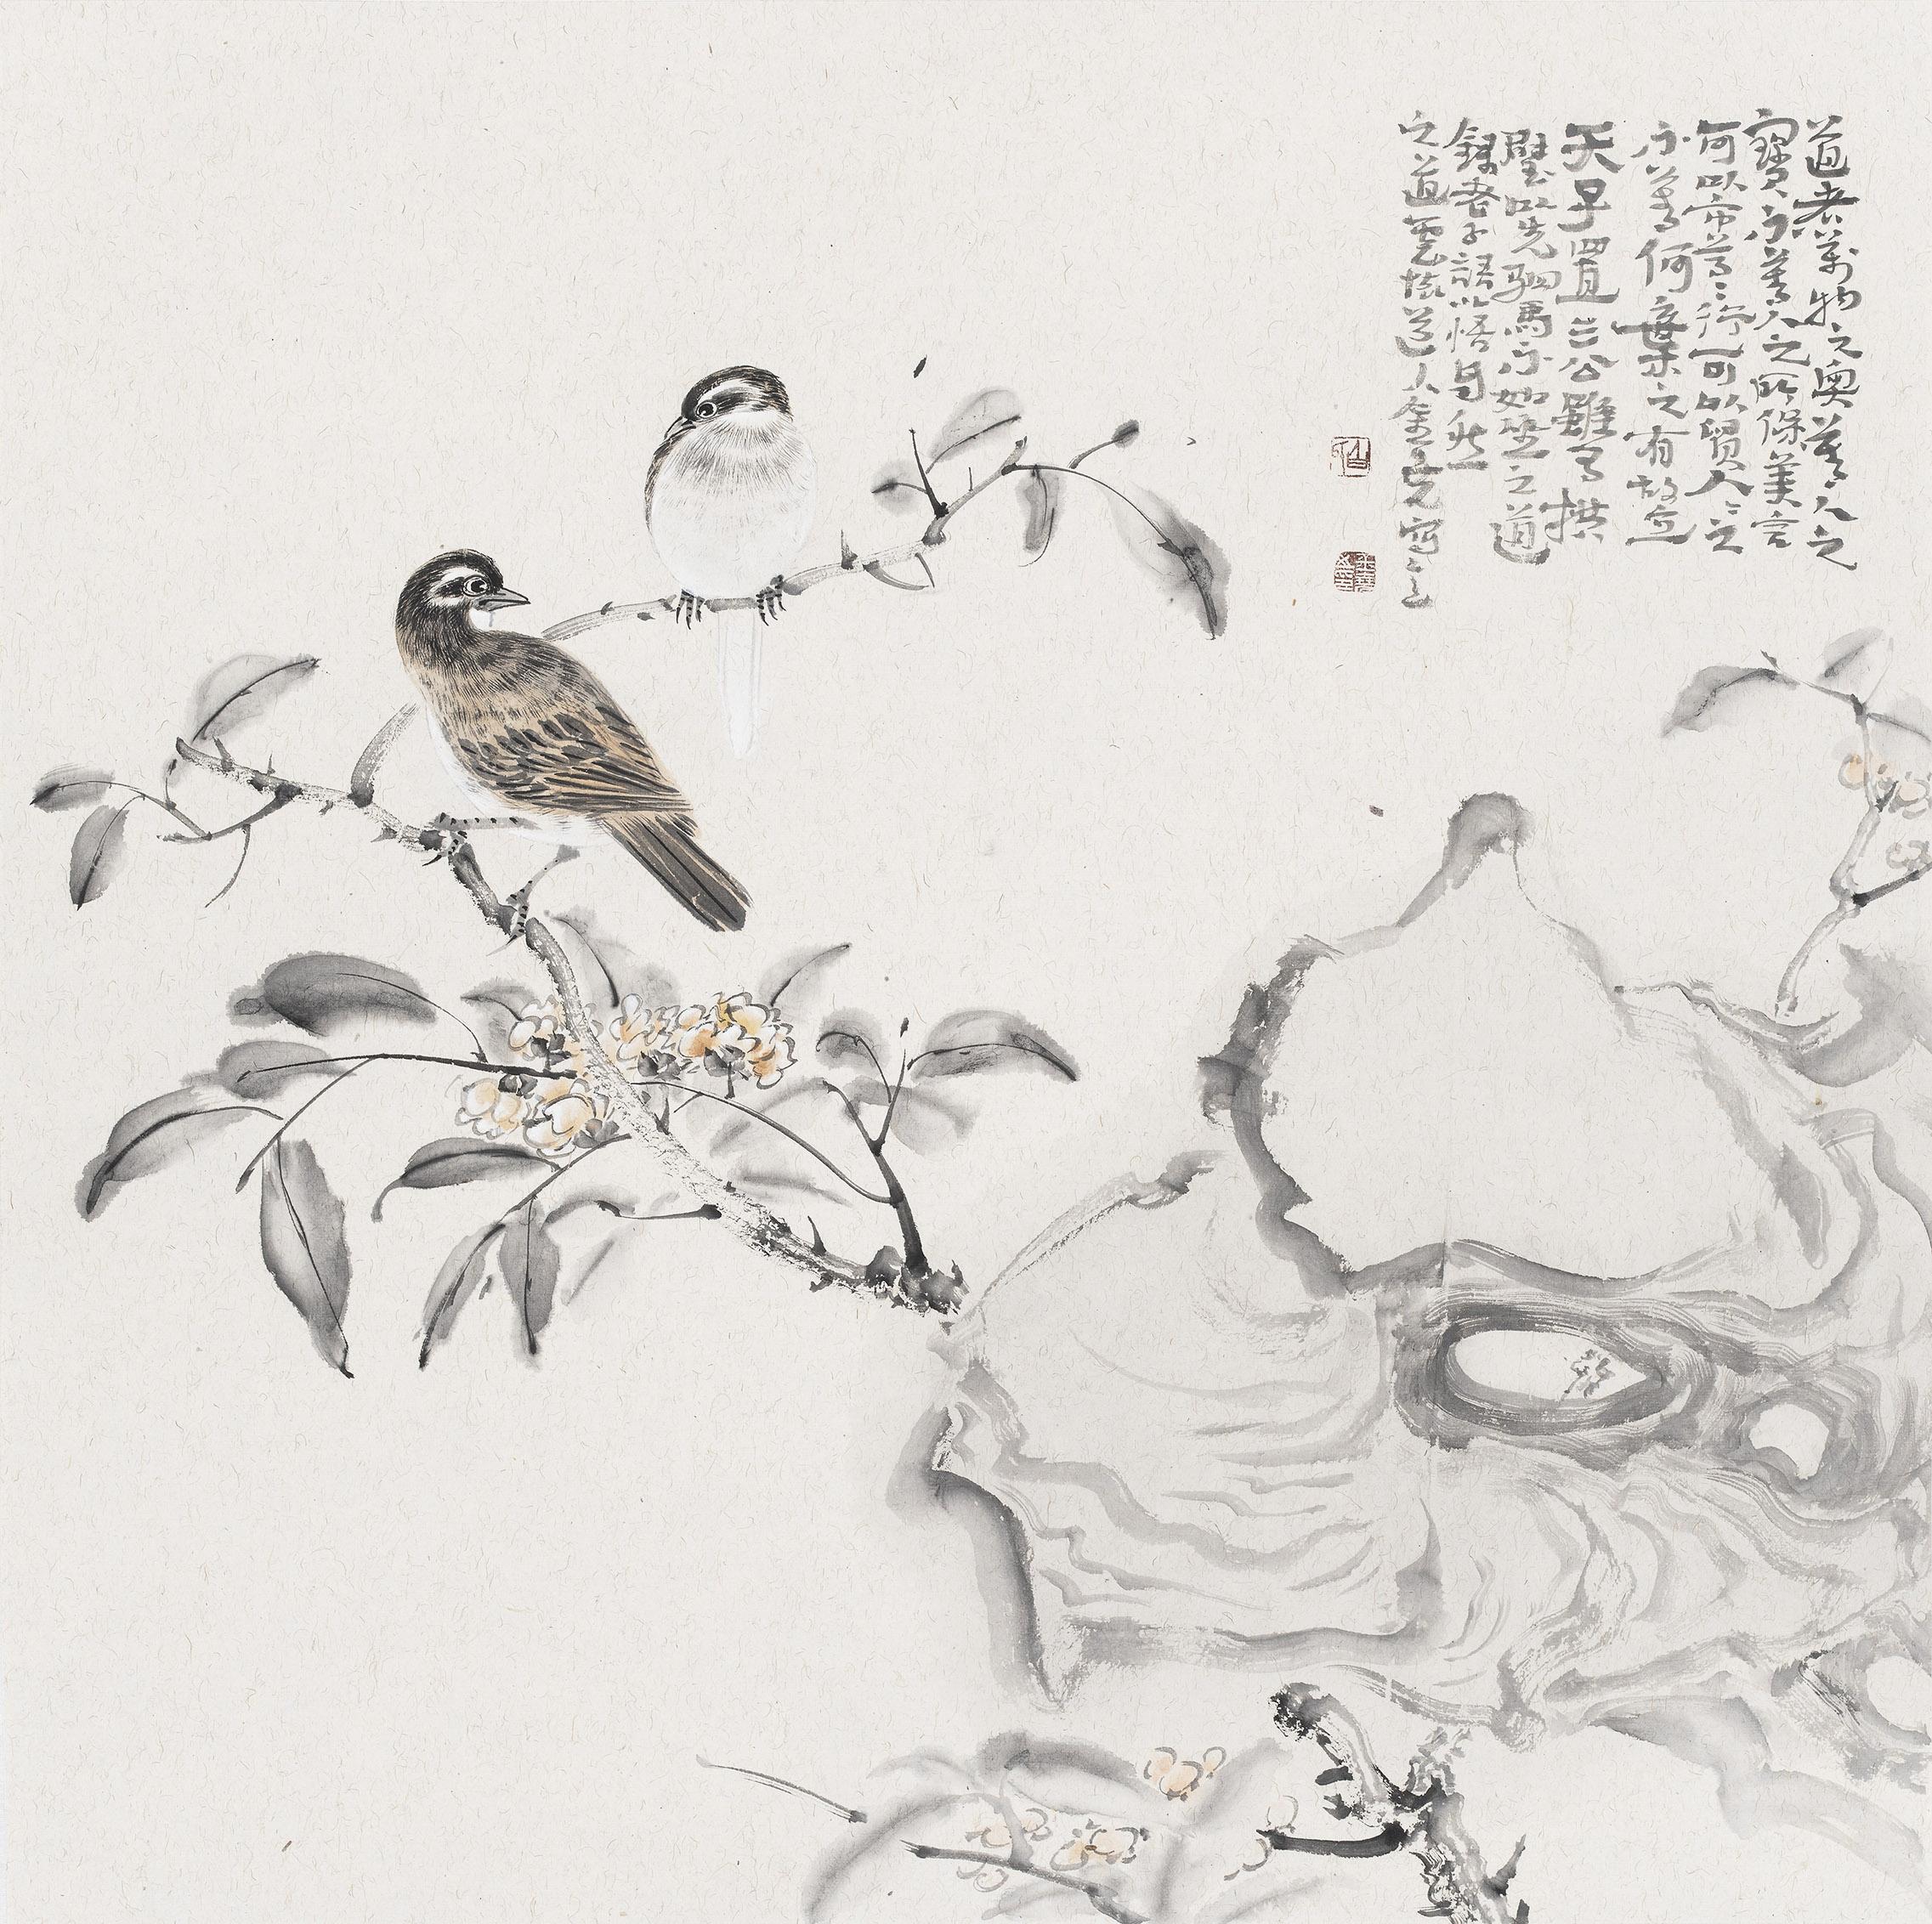 道者萬物之奧善人之
寶不善人之所保美言
何以市尊〻行可以賀人〻之
不善何棄之有故立
天子置三公雖有拱
璧以先駟馬不如坐之道
錄老子語以悟自然
之道雲道人金寫之